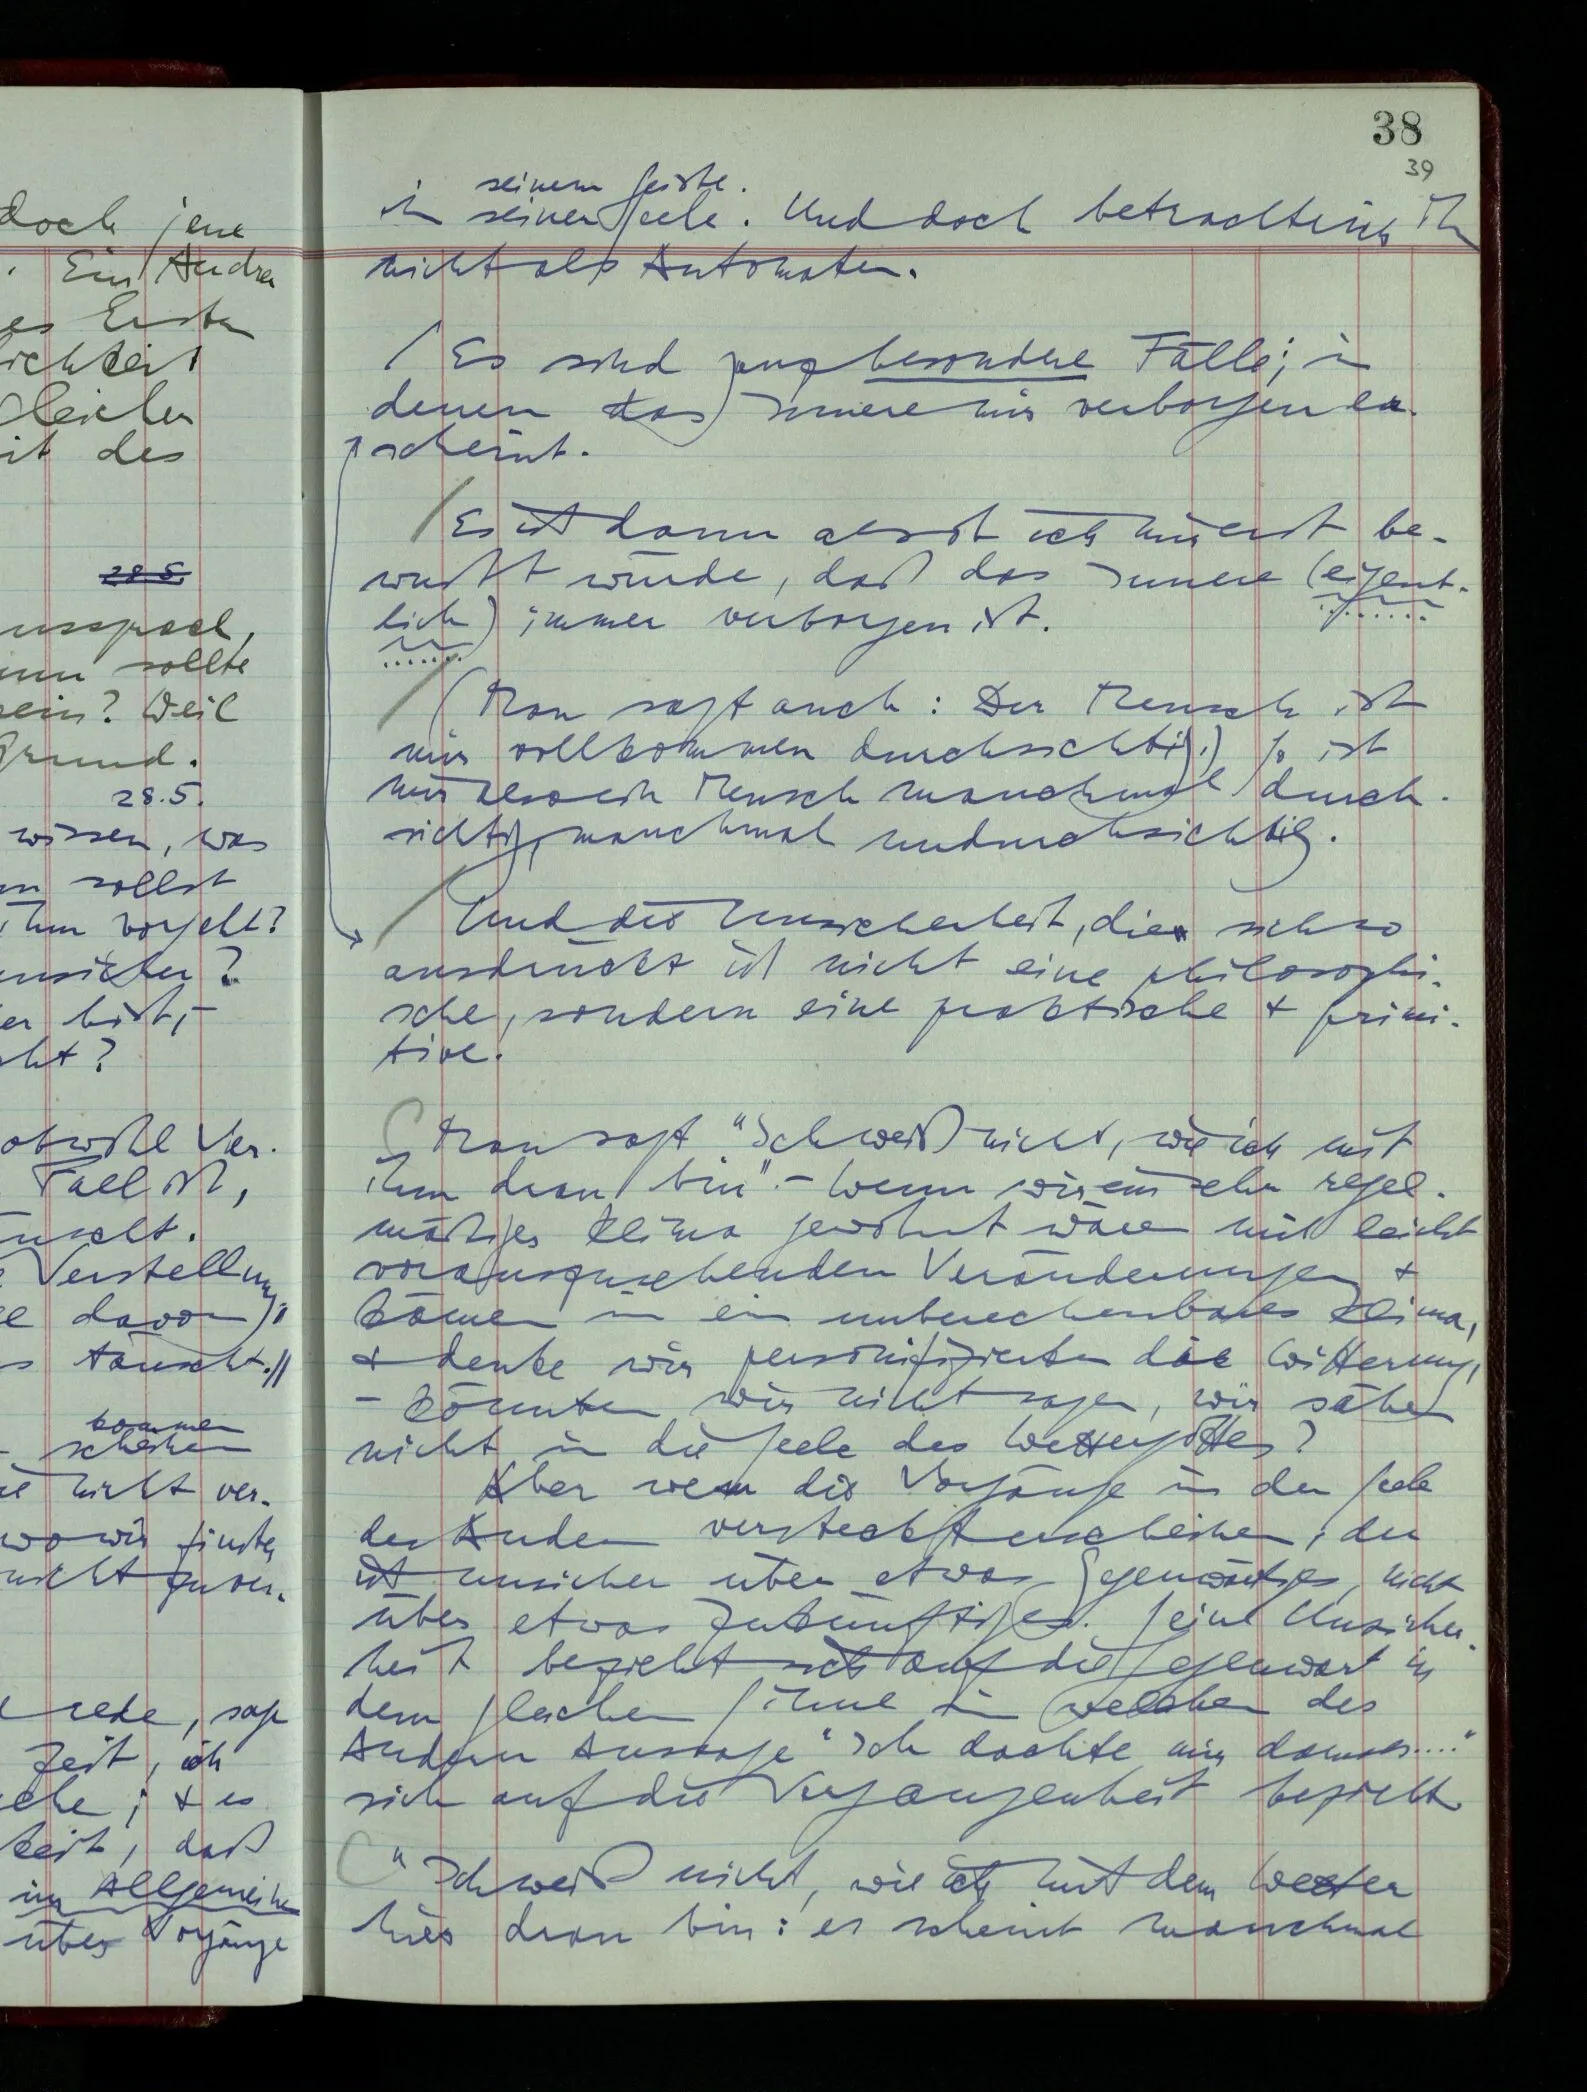 doch jene
. Ein Andrer
es Ersten
lichkeit
gleicher
it des
28.5.
ausspracl,
sollte
sein? Weil
Grund.
28.5.
wissen, was
sollst
ihm vorgeht?
unsicher?
er bist,–
cht?
obwohl Ver-
Fall ist,
täuscht.
Verstellung
davon)"
täuscht.//
kommen
scheinen
nicht ver-
wo wir finster
nicht zuver-
rede, sage
Zeit, ich
; + es
keit, daß
im Allgemeinen
über Vorgänge
38
39
seinem Geiste.
in seiner Seele. Und doch betrachte ich ihn
nicht als Automaten.
/ Es sind ganz besondere Fälle; in
denen das Innere mir verborgen er-
scheint.
/ Es ist dann als ob ich mir erst be-
wußt würde, daß das Innere (eigent-
lich) immer verborgen ist.
/ (Man sagt auch: Der Mensch ist
mir vollkommen durchsichtig.) So ist
mir also ein Mensch manchmal durch-
sichtig, manchmal undurchsichtig.
/ Und die Unsicherheit, die sich so
ausdrückt ist nicht eine philosophi-
sche, sondern eine praktische + primi-
tive.
Man sagt "Ich weiß nicht, wie ich mit
ihm dran bin". – Wenn wir ein sehr regel-
mäßiges Klima gewohnt wären mit leicht
vorauszusehenden Veränderungen +
kämen in ein unberechenbares Klima,
+ denke wir personifizierten die Witterung,
– könnten wir nicht sagen, wir sähen
nicht in die Seele des Wettergottes?
Aber wem die Vorgänge in der Seele
des Andern versteckt erscheinen, der
ist unsicher über etwas Gegenwärtiges, nicht
über etwas Zukünftiges. Seine Unsicher-
heit bezieht sich auf die Gegenwart in
dem gleichen Sinne in welchem des
Andern Aussage "Ich dachte mir damals...."
sich auf die Vergangenheit bezieht
"Ich weiß nicht, wie ich mit dem Wetter
hier dran bin: es scheint manchmal